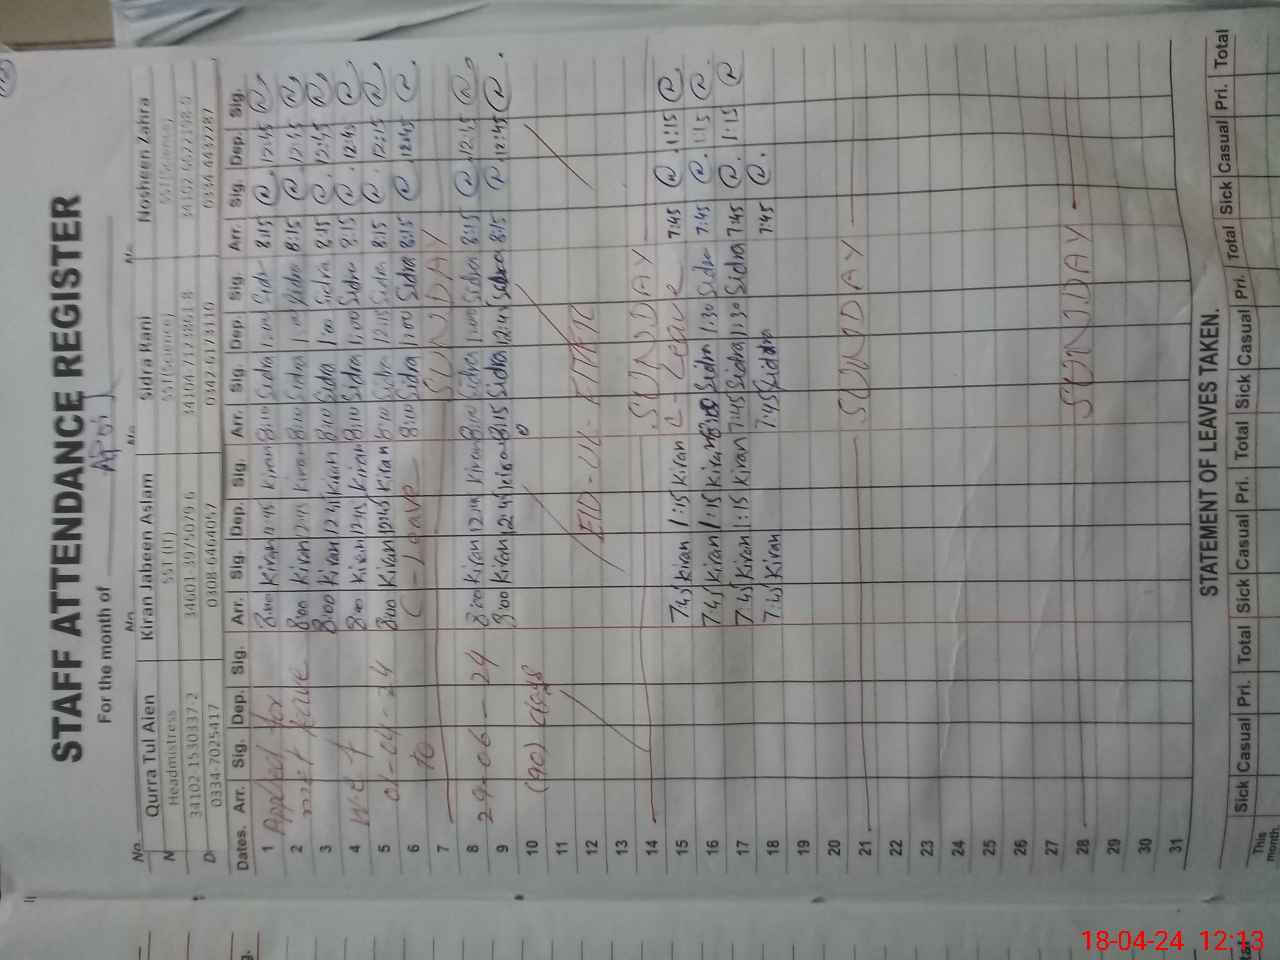 STAFF ATTENDANCE REGISTER
For the month of April
No. No. No. No.
Qurra Tul Aien Kiran Jabeen Aslam Sidra Rani Nosheen Zahra
Headmistress SST (IT) SST(Science) SST(Science)
34102-1530337-2 34601-3975079-6
0334-7025417 0308-6464057 0342-6173110 0334-4432787
Dates. Arr. Sig. Dep. Sig. Arr. Sig. Dep. Sig. Arr. Sig. Dep. Sig. Arr. Sig. Dep. Sig.
1 Applied for 8:00 Kiran 12:45 Kiran 8:10 Sidra 1:00 Sidra 8:15 12:45
2 leave 8:00 Kiran 12:45 Kiran 8:10 Sidra 1:00 Sidra 8:15 12:45
3 8:00 Kiran 12:45 Kiran 8:10 Sidra 1:00 Sidra 8:15 12:45
4 w.e.f 8:00 Kiran 12:45 Kiran 8:10 Sidra 1:00 Sidra 8:15 12:45
5 01-04-24 8:00 Kiran 12:45 Kiran 8:10 Sidra 12:15 Sidra 8:15 12:15
6 to C-Leave 8:10 Sidra 1:00 Sidra 8:15 12:45
7 SUNDAY
8 29-06-24 8:00 Kiran 12:45 Kiran 8:10 Sidra 1:00 Sidra 8:15 12:15
9 8:00 Kiran 12:45 Kiran 8:15 Sidra 12:45 Sidra 8:15 12:45
10 (90) days
11
12 EID-UL-FITR
13
14 SUNDAY
15 7:45 Kiran 1:15 Kiran C-Leave 7:45 1:15
16 7:45 Kiran 1:15 Kiran 8:00 Sidra 1:30 Sidra 7:45 1:15
17 7:45 Kiran 1:15 Kiran 7:45 Sidra 1:30 Sidra 7:45 1:15
18 7:45 Kiran 7:45 Sidra 7:45
19
20
21 SUNDAY
22
23
24
25
26
27
28 SUNDAY
29
30
31
STATEMENT OF LEAVES TAKEN.
Sick Casual Pri. Total Sick Casual Pri. Total Sick Casual Pri. Total Sick Casual Pri. Total
This month
18-04-24 12:13